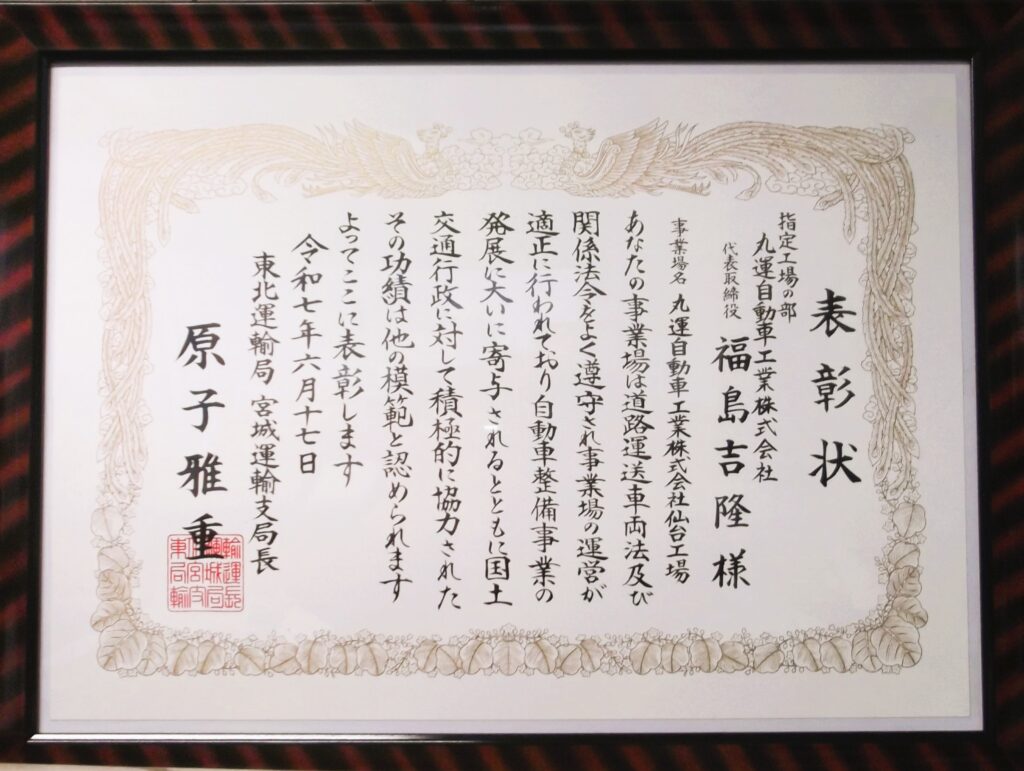 表彰状
指定工場の部
丸運自動車工業株式会社
代表取締役 福島吉隆様
事業場名 丸運自動車工業株式会社仙台工場
あなたの事業場は道路運送車両法及び
関係法令をよく遵守され事業場の運営が
適正に行われており自動車整備事業の
発展に大いに寄与されるとともに国土
交通行政に対して積極的に協力された
その功績は他の模範と認められます
よってここに表彰します
令和七年六月十七日
東北運輸局 宮城運輸支局長
原子雅重